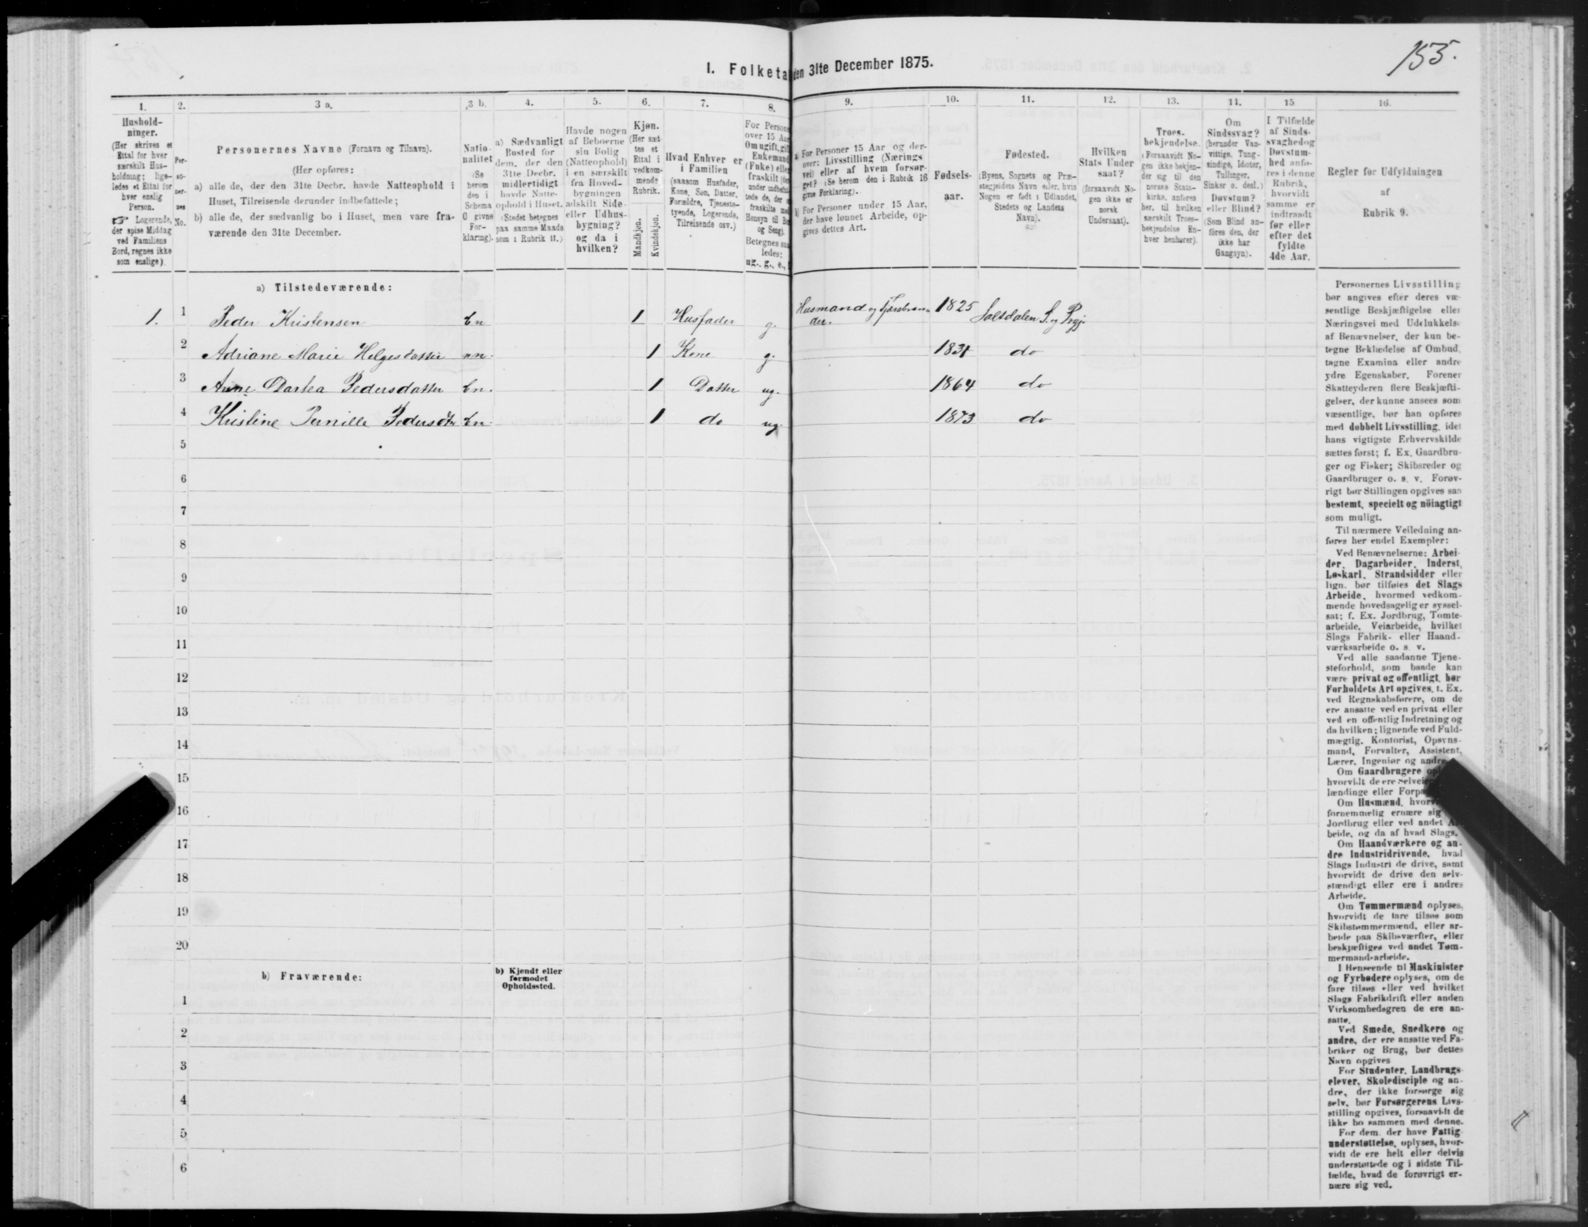 155.
1. Folketal den 31te December 1875.
1. 2. 3 a. 3 b. 4. 5. 6. 7. 8. 9. 10. 11. 12. 13. 14. 15 16.
Hushold-
ninger.
(Her skrives et
Ettal for hver
særskilt Hus-
holdning; lige-
ledes et Ettal for
hver enslig
Person.
☞ Logerende,
der spise Middag
ved Familiens
Bord, regnes ikke
som enslige).
Per-
so-
ner-
nes
No.
Personernes Navne (Fornavn og Tilnavn).
(Her opføres:
a) alle de, der den 31te Decbr. havde Natteophold i
Huset, Tilreisende derunder indbefattede;
b) alle de, der sædvanlig bo i Huset, men vare fra-
værende den 31te December.
Natio-
nalitet
(Se
herom
den i
Schema
O givne
For-
klaring).
a) Sædvanligt
Bosted for
dem, der den
31te Decbr.
midlertidigt
havde Natte-
ophold i Huset.
(Stedet betegnes
paa samme Maade
som i Rubrik 11.)
Havde nogen
af Beboerne
sin Bolig
(Natteophold)
i en særskilt
fra Hoved-
bygningen
adskilt Side-
eller Udhus-
bygning?
og da i
hvilken?
Kjøn.
(Her sæt-
tes et
Ettal i
vedkom-
mende
Rubrik.
Mandkjøn.
Kvindekjøn.
Hvad Enhver er
i Familien
(saasom Husfader,
Kone, Søn, Datter,
Forældre, Tjeneste-
tyende, Logerende,
Tilreisende osv.)
For Persone
over 15 Aar
Om ugift, gif
Enkemand
(Enke) elle
fraskilt
Betegnes
ledes:
ug., g., e.,
a) For Personer 15 Aar og der-
over: Livsstilling (Nærings
vei) eller af hvem forsør-
get? (Se herom den i Rubrik 16
givne Forklaring).
b) For Personer under 15 Aar,
der have lønnet Arbeide, op-
gives dettes Art.
Fødsels-
aar.
Fødested.
(Byens, Sognets og Præ-
stegjeldets Navn eller, hvis
Nogen er født i Udlandet,
Stedets og Landets
Navn).
Hvilken
Stats Under
saat?
(forsaavidt No-
gen ikke er
norsk
Undersaat).
Troes-
bekjendelse.
(Forsaavidt No-
gen ikke bekjen-
der sig til den
norske Stats-
kirke, anføres
her, til hvilken
særskilt Troes-
bekjendelse En-
hver henhører).
Om
Sindssvag?
(herunder Van-
vittige, Tung-
sindige, Idioter,
Tullinger,
Sinker o. desl.)
Døvstum?
eller Blind?
(Som Blind an-
føres den, der
ikke har
Gangsyn).
I Tilfælde
af Sinds-
svaghed og
Døvstum-
hed anfø-
res i denne
Rubrik,
hvorvidt
samme er
indtraadt
før eller
efter det
fyldte
4de Aar.
Regler for Udfyldningen
af
Rubrik 9.
a) Tilstedeværende:
1. 1 Peder Kristensen bn 1 Husfader g. Husmand og 1825 Saltdalen S. og Pgj.
2 Adriane Marie Helgesdatter nn. 1 Kone g. 1831 do
3 Anne Dortea Pedersdatter bn. 1 Datter ug. 1864 do
4 Kristine Pernille Pedersdtr bn. 1 do ug. 1873 do
5
6
7
8
9
10
11
12
13
14
15
16
17
18
19
20
b) Fraværende:
b) Kjendt eller
formodet
Opholdssted.
1
2
3
4
5
6
Personernes Livsstilling
bør angives efter deres væ-
sentlige Beskjæftigelse eller
Næringsvei med Udelukkelse
af Benævnelser, der kun be-
tegne Beklædelse af Ombud,
tagne Examina eller andre
ydre Egenskaber. Forener
Skatteyderen flere Beskjæfti-
gelser, der kunne ansees som
væsentlige, bør han opføres
med dobbelt Livsstilling, idet
hans vigtigste Erhvervskilde
sættes først; f. Ex. Gaardbru-
ger og Fisker; Skibsreder og
Gaardbruger o. s. v. Forøv-
rigt bør Stillingen opgives saa
bestemt, specielt og nöiagtigt
som muligt.
Til nærmere Veiledning an-
føres her endel Exempler:
Ved Benævnelserne: Arbei-
der, Dagarbeider, Inderst,
Løskarl, Strandsidder eller
lign. bør tilføies det Slags
Arbeide, hvormed vedkom-
mende hovedsagelig er syssel-
sat; f. Ex. Jordbrug, Tomte-
arbeide, Veiarbeide, hvilket
Slags Fabrik- eller Haand-
værksarbeide o. s. v.
Ved alle saadanne Tjene-
steforhold, som baade kan
være privat og offentligt, bør
Forholdets Art opgives, t. Ex.
ved Regnskabsførere, om de
ere ansatte ved en privat eller
ved en offentlig Indretning og
da hvilken; lignende ved Fuld-
mægtig, Kontorist, Opsyns-
mand, Forvalter, Assistent,
Lærer, Ingeniør og andre
Om Gaardbrugere
hvorvidt de ere Selveie
lændinge eller
Om Husmænd, hvor
fornemmelig ernære sig
Jordbrug eller ved andet
beide, og da af hvad Slags.
Om Haandværkere og an-
dre Industridrivende, hvad
Slags Industri de drive, samt
hvorvidt de drive den selv-
stændigt eller ere i andres
Arbeide.
Om Tømmermænd oplyses,
hvorvidt de fare tilsøs som
Skibstømmermænd, eller ar-
beide paa Skibsværfter, eller
beskjæftiges ved andet Tøm-
mermandsarbeide.
I Henseende til Maskinister
og Fyrbødere oplyses, om de
fare tilsøs eller ved hvilket
Slags Fabrikdrift eller anden
Virksomhedsgren de ere an-
satte.
Ved Smede, Snedkere og
andre, der ere ansatte ved Fa-
briker og Brug, bør dettes
Navn opgives
For Studenter, Landbrugs-
elever, Skoledisciple og an-
dre, der ikke forsørge sig
selv, bør Forsørgerens Livs-
stilling opgives, forsaavidt de
ikke bo sammen med denne.
For dem, der have Fattig-
understøttelse, oplyses, hvor-
vidt de ere helt eller delvis
understøttede og i sidste Til-
fælde, hvad de forøvrigt er-
nære sig ved.